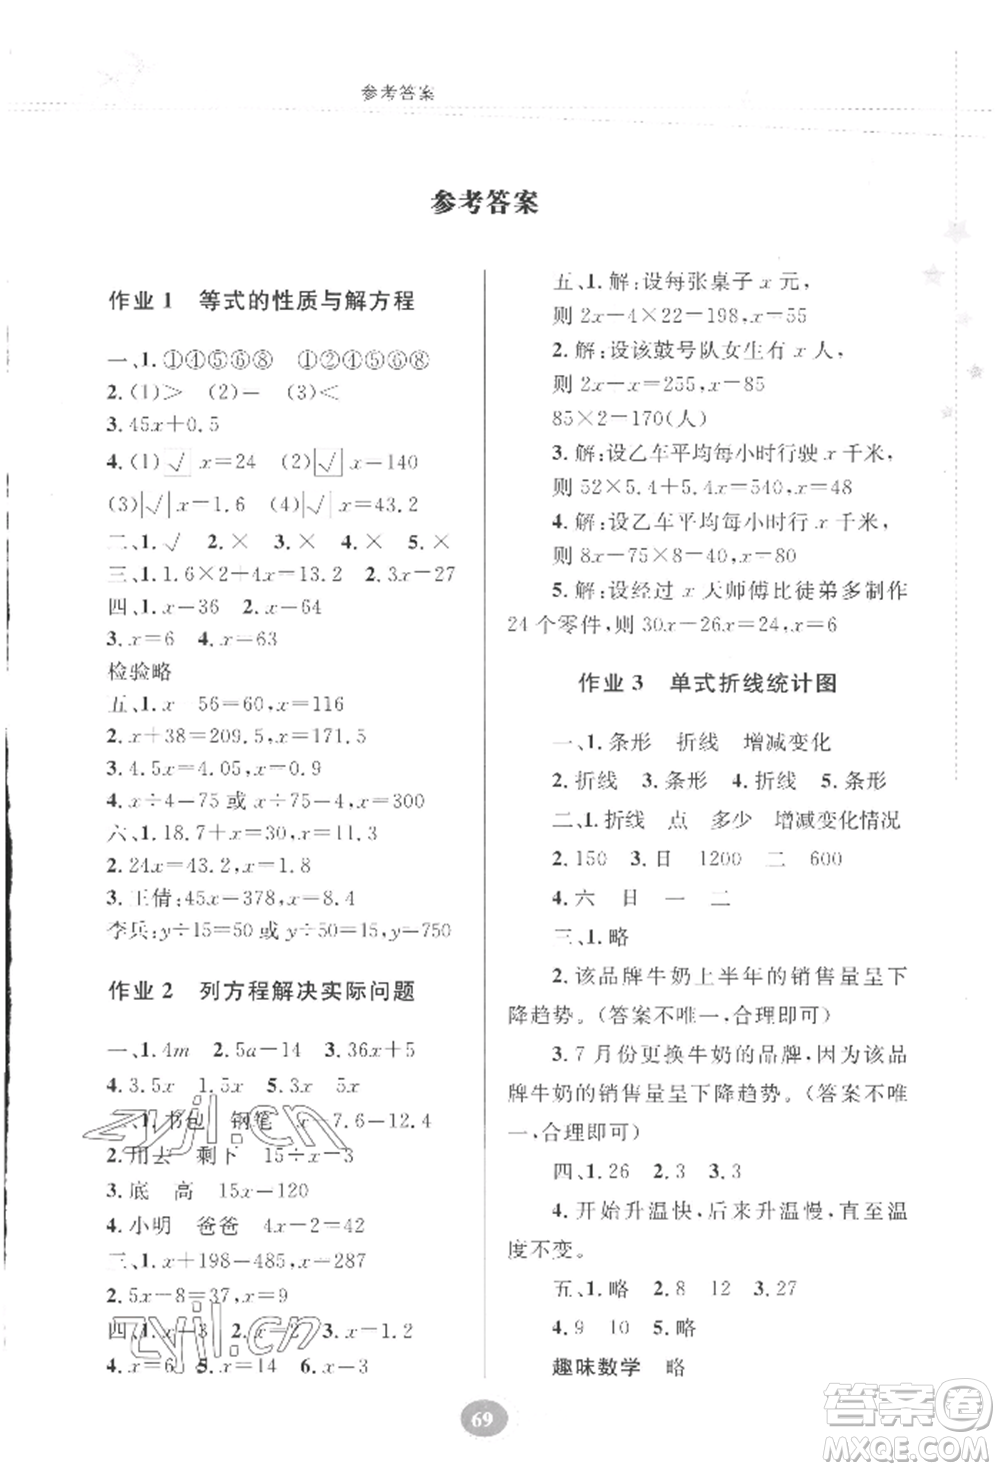 参考答案
参考答案
作业1 等式的性质与解方程
一、1. ①④⑤⑥⑧ ①④⑤⑥⑧
2. (1)> (2)- (3)<
3. 45x+0.5
4. (1)√ x=24 (2)√ x-140
(3)√ x=1.6 (4)√ x=43.2
二、1. √ 2. × 3. × 4. × 5. ×
三、1. 1.6×2+4x=13.2 2. 3x=450
四、1. x-36 2. x-64
3. x=6 4. x=63
检验略
五、1. x-56=60 x=116
2. x+38=209.5 x=171.5
3. 4.5x=4.05 x=0.9
4. x÷4-75或x÷75=4 x=300
六、1. 18.7+x=30, x=11.3
2. 24x=43.2, x=1.8
3. 王倩:45x=378, x=8.4
李兵:y÷15=50或y÷50=15 y-750
作业2 列方程解决实际问题
一、1. 4m 2. 5a-14 3. 36x+5
4. 3.5x 1.5x 5x
1. 书包 钢笔 x-7.6-12.4
2. 用去 剩下 15÷x-3
3. 底 高 15x-120
4. 小明 爸爸 4x-2=42
三、1. x+198-485, x=287
2. 5x-8=37, x=9
四、1. x-3 2. x=2 3. x-1.2
4. x=6 5. x=14 6. x-3
五、1. 解:设每张桌子x元,
则 2x-4×22-198, x-55
2. 解:设该鼓号队女生有x人,
则 2x-x=255, x-85
85×2-170(人)
3. 解:设乙车平均每小时行驶x千米,
则 52×5.4+5.4x=540, x=48
4. 解:设乙车平均每小时行x千米,
则 85×8-8x-40, x-80
5. 解:设经过x天师傅比徒弟多制作
24个零件,则 30x-26x=24, x=6
作业3 单式折线统计图
一、1. 条形 折线 增减变化
2. 折线 3. 条形 4. 折线 5. 条形
二、1. 折线 点 多少 增减变化情况
2. 150 3. 日 1200 二 600
4. 六 日 一 二
三、1. 略
2. 该品牌牛奶上半年的销售量呈下
降趋势。(答案不唯一,合理即可)
3. 7月份更换牛奶的品牌,因为该品
牌牛奶的销售量呈下降趋势。(答案不唯
一,合理即可)
四、1. 26 2. 3 3. 3
4. 开始升温快,后来升温慢,最后温
度不变。
五、1. 略 2. 8 12 3. 27
4. 9 10 5. 略
趣味数学 略
69
zyjl.cn
zyjl.cn
答案圈
MXQE.COM